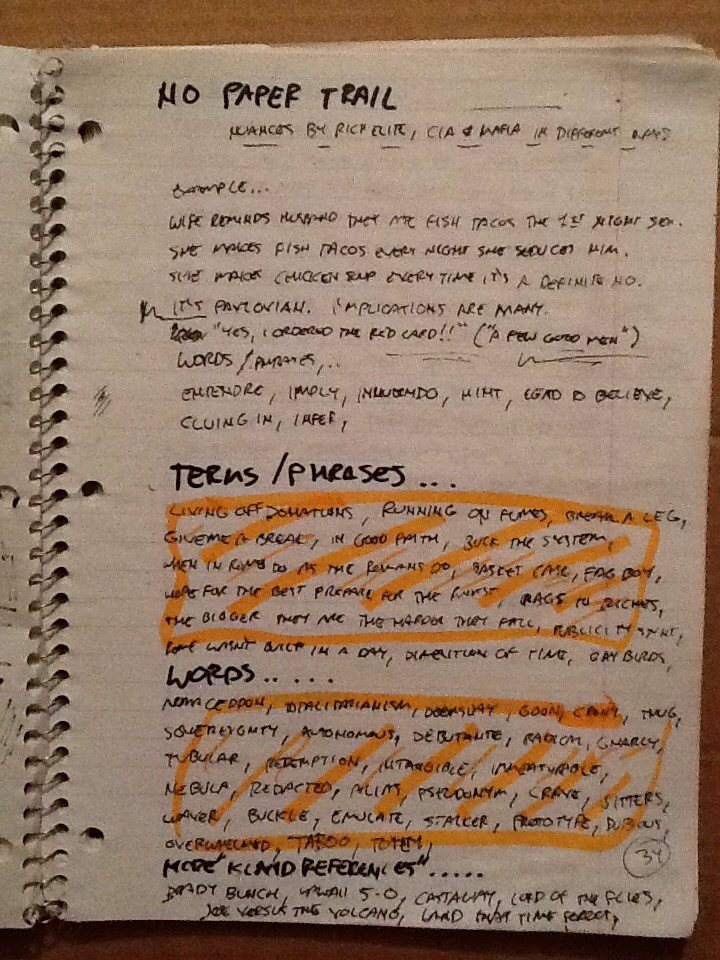 NO PAPER TRAIL
NUANCES BY RICH ELITE, CIA & MAFIA IN DIFFERENT WAYS
EXAMPLE...
WIFE REMINDS HUSBAND THEY ATE FISH TACOS THE 1ST NIGHT SEX.
SHE MAKES FISH TACOS EVERY NIGHT SHE SEDUCES HIM.
SHE MAKES CHICKEN SOUP EVERY TIME IT'S A DEFINITE NO.
IT'S PAVLOVIAN. IMPLICATIONS ARE MANY.
"YES, I ORDERED THE RED CARD!!" ("A FEW GOOD MEN")
WORDS/PHRASES,..
ENTENDRE, IMPLY, INNUENDO, HINT, LEAD TO BELIEVE,
CLUING IN, INFER,
TERMS/PHRASES...
LIVING OFF DONATIONS, RUNNING ON FUMES, BREAK A LEG,
GIVE ME A BREAK, IN GOOD FAITH, BUCK THE SYSTEM,
WHEN IN ROME DO AS THE ROMANS DO, BASKET CASE, FAG BOY,
HOPE FOR THE BEST PREPARE FOR THE WORST, RAGS TO RICHES,
THE BIGGER THEY ARE THE HARDER THEY FALL, PUBLICITY STUNT,
ROME WASN'T BUILT IN A DAY, DIMENTION OF TIME, GAY BIRDS,
WORDS.....
ARMAGEDDON, TOTALITARIANISM, DOOMSDAY, GOON, CRONY, THUG,
SOVEREIGNTY, AUTONOMOUS, DEBUTANTE, RADICAL, GNARLY,
TUBULAR, REDEMPTION, INTANGIBLE,
NEBULA, REDACTED, ALIAS, PSEUDONYM, CRAVE, SITTERS,
WAVER, BUCKLE, EMULATE, STALKER, PROTOTYPE, DUBIOUS,
OVERWHELMED, TABOO, TOTEM,
MORE "ISLAND REFERENCES".....
34
BRADY BUNCH, HAWAII 5-0, CASTAWAY, LORD OF THE FLIES,
JOE VERSUS THE VOLCANO, LAND THAT TIME FORGOT,